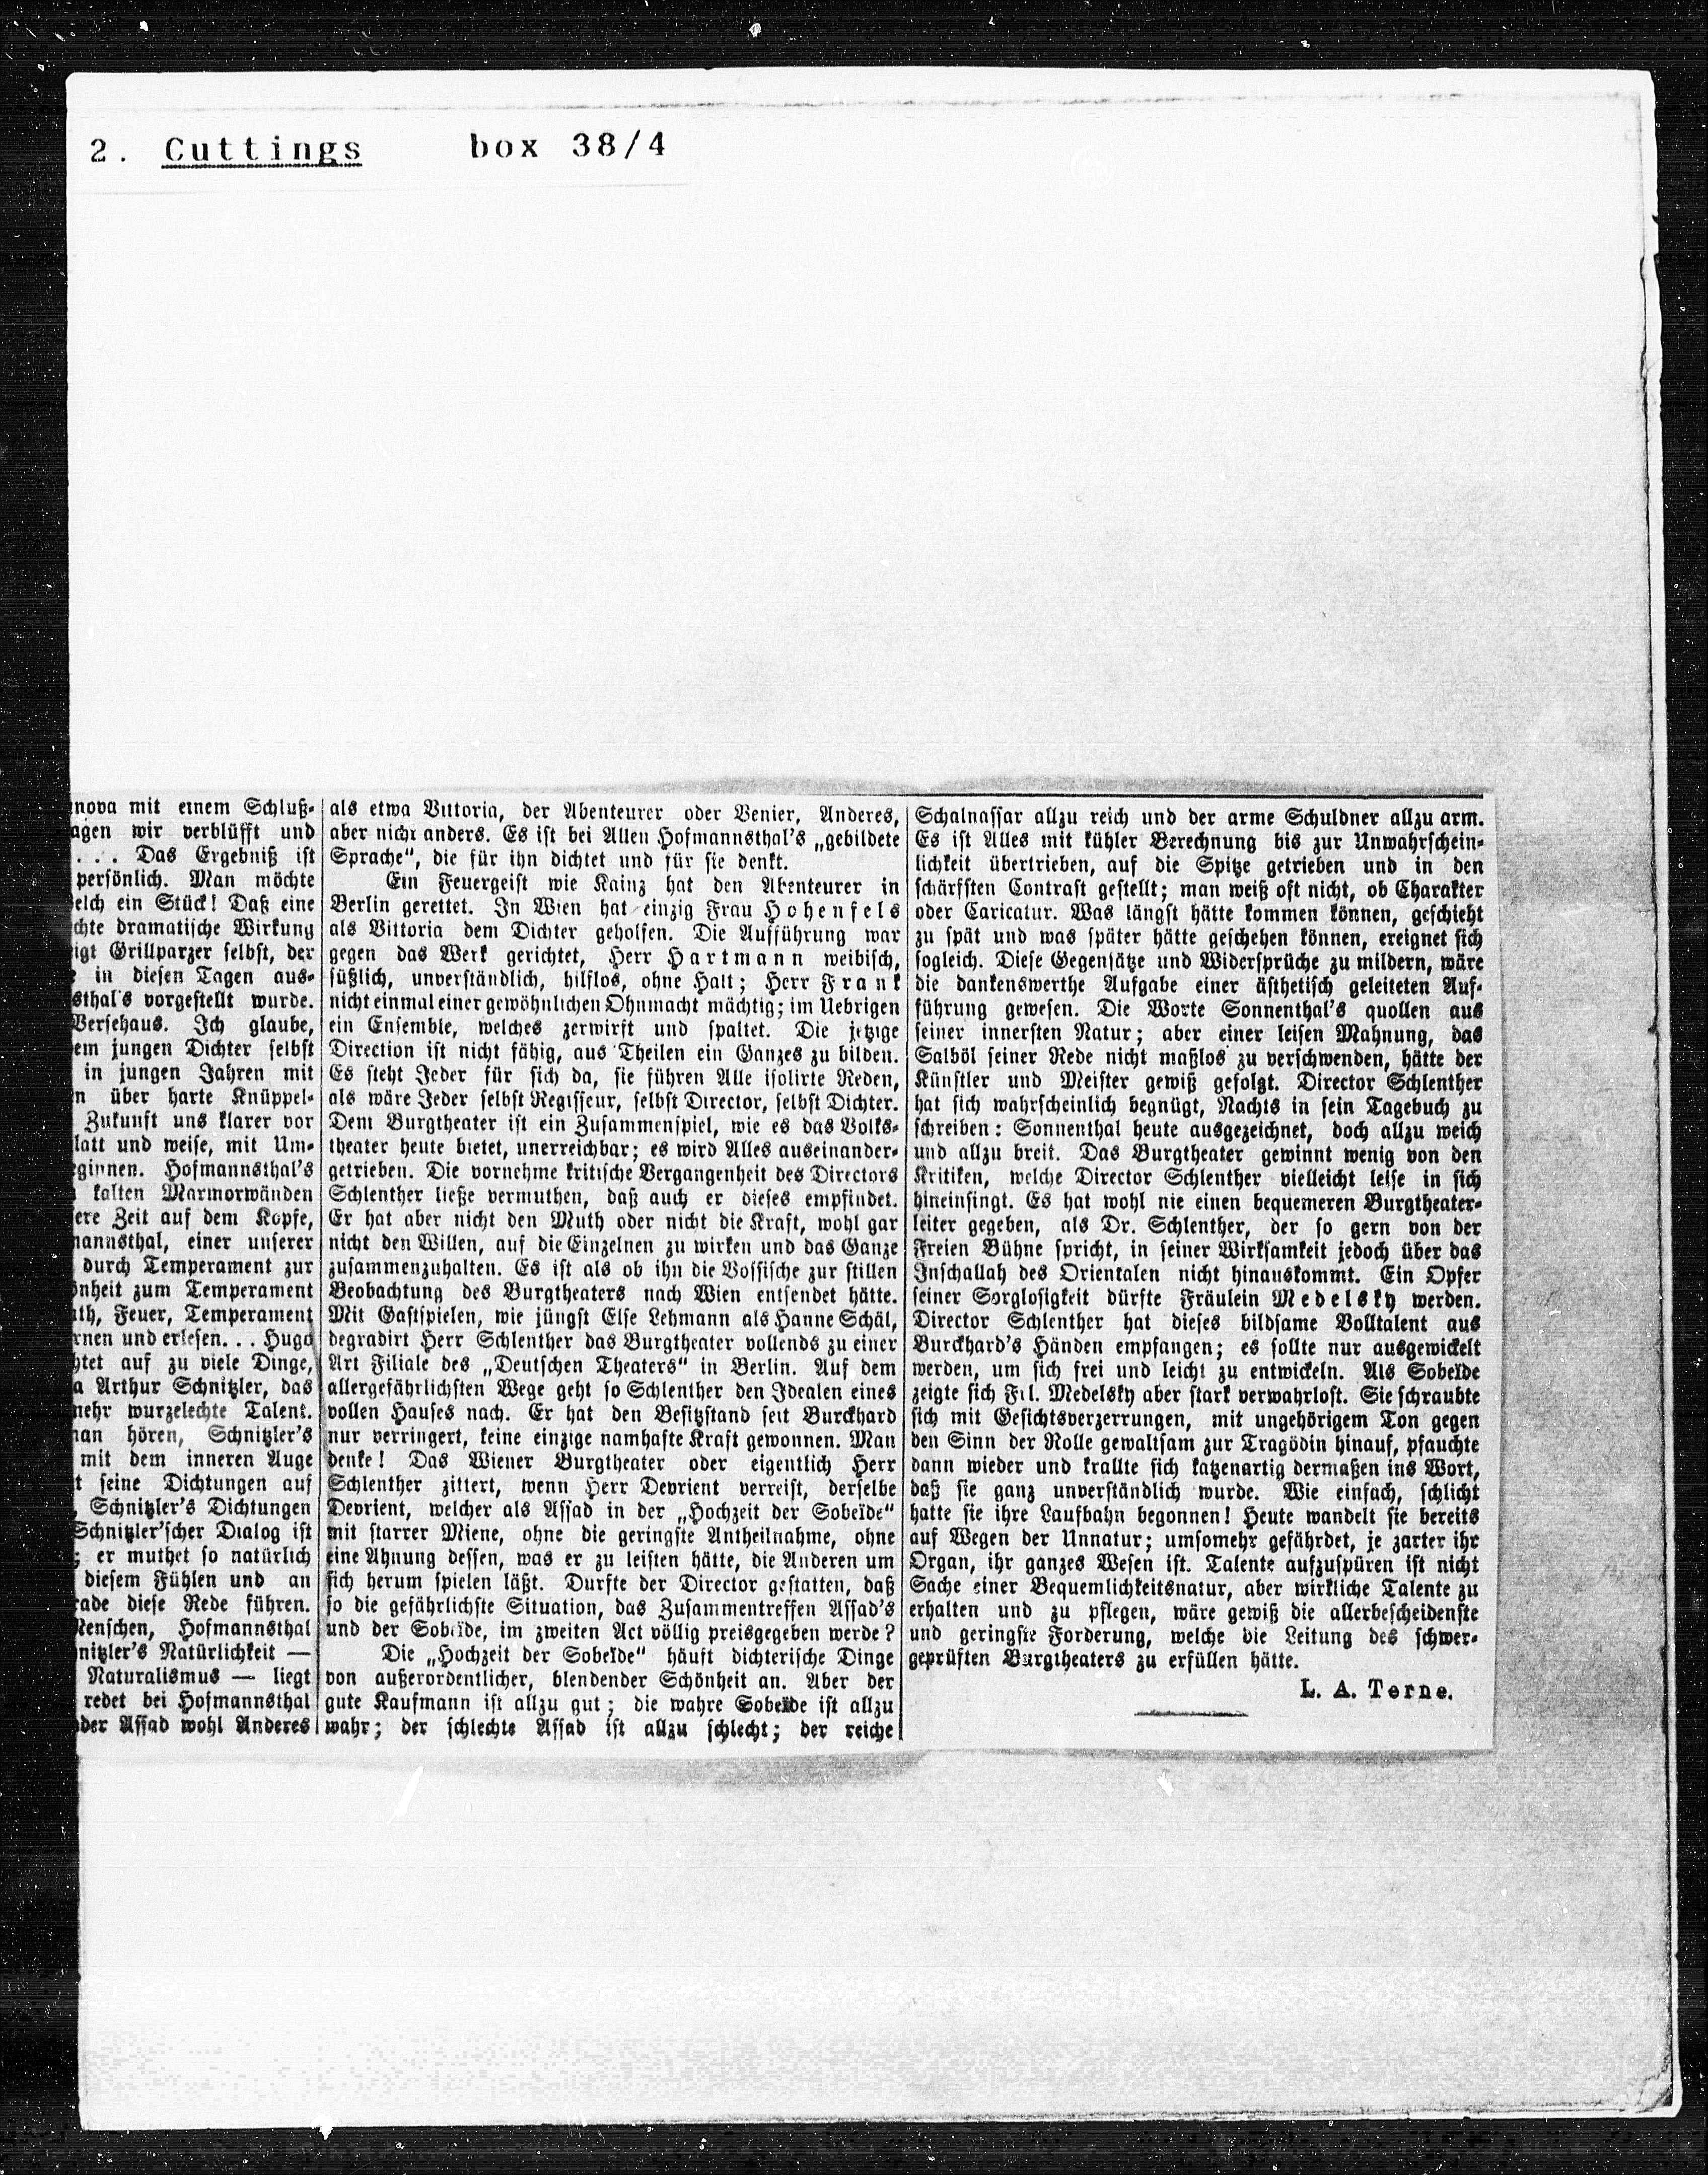 2. Cuttings box 38/4
nova mit einem Schluß-
agen wir verblüfft und
. . . Das Ergebniß ist
persönlich. Man möchte
elch ein Stück! Daß eine
chte dramatische Wirkung
igt Grillparzer selbst, der
in diesen Tagen aus-
sthal's vorgestellt wurde.
Versehaus. Ich glaube,
em jungen Dichter selbst
in jungen Jahren mit
n über harte Knüppel-
Zukunft uns klarer vor
latt und weise, mit Um-
ginnen. Hofmannsthal's
kalten Marmorwänden
ere Zeit auf dem Kopfe,
nannsthal, einer unserer
durch Temperament zur
önheit zum Temperament
th, Feuer, Temperament
rnen und erlesen. . . Hugo
htet auf zu viele Dinge,
a Arthur Schnitzler, das
mehr wurzelechte Talent.
nan hören, Schnitzler's
mit dem inneren Auge
t seine Dichtungen auf
Schnitzler's Dichtungen
Schnitzler'scher Dialog ist
; er muthet so natürlich
diesem Fühlen und an
rade diese Rede führen.
Menschen, Hofmannsthal
nitzler's Natürlichkeit —
Naturalismus — liegt
redet bei Hofmannsthal
der Assad wohl Anderes
als etwa Vittoria, der Abenteurer oder Venier, Anderes,
aber nicht anders. Es ist bei Allen Hofmannsthal's „gebildete
Sprache“, die für ihn dichtet und für sie denkt.
Ein Feuergeist wie Kainz hat den Abenteurer in
Berlin gerettet. In Wien hat einzig Frau Hohenfels
als Vittoria dem Dichter geholfen. Die Aufführung war
gegen das Werk gerichtet, Herr Hartmann weibisch,
süßlich, unverständlich, hilflos, ohne Halt; Herr Frank
nicht einmal einer gewöhnlichen Ohnmacht mächtig; im Uebrigen
ein Ensemble, welches zerwirft und spaltet. Die jetzige
Direction ist nicht fähig, aus Theilen ein Ganzes zu bilden.
Es steht Jeder für sich da, sie führen Alle isolirte Reden,
als wäre Jeder selbst Regisseur, selbst Director, selbst Dichter.
Dem Burgtheater ist ein Zusammenspiel, wie es das Volks-
theater heute bietet, unerreichbar; es wird Alles auseinander-
getrieben. Die vornehme kritische Vergangenheit des Directors
Schlenther ließe vermuthen, daß auch er dieses empfindet.
Er hat aber nicht den Muth oder nicht die Kraft, wohl gar
nicht den Willen, auf die Einzelnen zu wirken und das Ganze
zusammenzuhalten. Es ist als ob ihn die Vossische zur stillen
Beobachtung des Burgtheaters nach Wien entsendet hätte.
Mit Gastspielen, wie jüngst Else Lehmann als Hanne Schäl,
degradirt Herr Schlenther das Burgtheater vollends zu einer
Art Filiale des „Deutschen Theaters“ in Berlin. Auf dem
allergefährlichsten Wege geht so Schlenther den Idealen eines
vollen Hauses nach. Er hat den Besitzstand seit Burckhard
nur verringert, keine einzige namhafte Kraft gewonnen. Man
denke! Das Wiener Burgtheater oder eigentlich Herr
Schlenther zittert, wenn Herr Devrient verreist, derselbe
Devrient, welcher als Assad in der „Hochzeit der Sobeïde“
mit starrer Miene, ohne die geringste Antheilnahme, ohne
eine Ahnung dessen, was er zu leisten hätte, die Anderen um
sich herum spielen läßt. Durfte der Director gestatten, daß
so die gefährlichste Situation, das Zusammentreffen Assad's
und der Sobeïde, im zweiten Act völlig preisgegeben werde?
Die „Hochzeit der Sobeïde“ häuft dichterische Dinge
von außerordentlicher, blendender Schönheit an. Aber der
gute Kaufmann ist allzu gut; die wahre Sobeïde ist allzu
wahr; der schlechte Assad ist allzu schlecht; der reiche
Schalnassar allzu reich und der arme Schuldner allzu arm.
Es ist Alles mit kühler Berechnung bis zur Unwahrschein-
lichkeit übertrieben, auf die Spitze getrieben und in den
schärfsten Contrast gestellt; man weiß oft nicht, ob Charakter
oder Caricatur. Was längst hätte kommen können, geschieht
zu spät und was später hätte geschehen können, ereignet sich
sogleich. Diese Gegensätze und Widersprüche zu mildern, wäre
die dankenswerthe Aufgabe einer ästhetisch geleiteten Auf-
führung gewesen. Die Worte Sonnenthal's quollen aus
seiner innersten Natur; aber einer leisen Mahnung, das
Salböl seiner Rede nicht maßlos zu verschwenden, hätte der
Künstler und Meister gewiß gefolgt. Director Schlenther
hat sich wahrscheinlich begnügt, Nachts in sein Tagebuch zu
schreiben: Sonnenthal heute ausgezeichnet, doch allzu weich
und allzu breit. Das Burgtheater gewinnt wenig von den
Kritiken, welche Director Schlenther vielleicht leise in sich
hineinsingt. Es hat wohl nie einen bequemeren Burgtheater-
leiter gegeben, als Dr. Schlenther, der so gern von der
Freien Bühne spricht, in seiner Wirksamkeit jedoch über das
Inschallah des Orientalen nicht hinauskommt. Ein Opfer
seiner Sorglosigkeit dürfte Fräulein Medelsky werden.
Director Schlenther hat dieses bildsame Volltalent aus
Burckhard's Händen empfangen; es sollte nur ausgewickelt
werden, um sich frei und leicht zu entwickeln. Als Sobeïde
zeigte sich Frl. Medelsky aber stark verwahrlost. Sie schraubte
sich mit Gesichtsverzerrungen, mit ungehörigem Ton gegen
den Sinn der Rolle gewaltsam zur Tragödin hinauf, pfauchte
dann wieder und krallte sich katzenartig dermaßen ins Wort,
daß sie ganz unverständlich wurde. Wie einfach, schlicht
hatte sie ihre Laufbahn begonnen! Heute wandelt sie bereits
auf Wegen der Unnatur; umsomehr gefährdet, je zarter ihr
Organ, ihr ganzes Wesen ist. Talente aufzuspüren ist nicht
Sache einer Bequemlichkeitsnatur, aber wirkliche Talente zu
erhalten und zu pflegen, wäre gewiß die allerbescheidenste
und geringste Forderung, welche die Leitung des schwer-
geprüften Burgtheaters zu erfüllen hätte.
L. A. Terne.